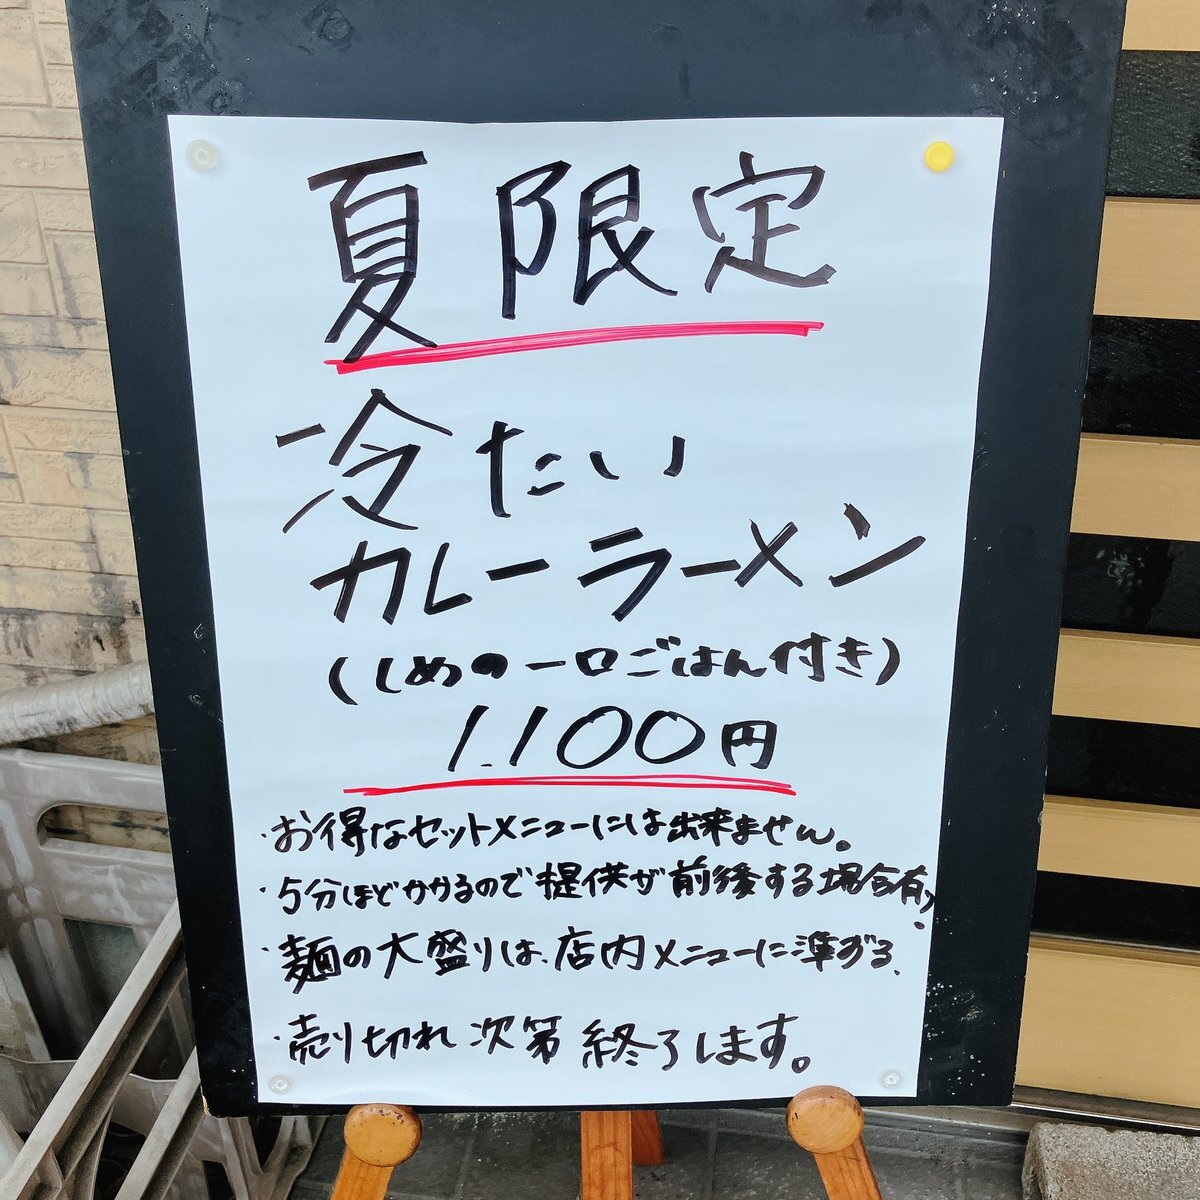 夏限定
冷たい
カレーラーメン
(しめの一口ごはん付き)
1.100円
・お得なセットメニューには出来ません。
・5分ほどかかるので提供が前後する場合有り.
・麺の大盛りは、店内メニューに準ずる、
・売り切れ次第終了します。